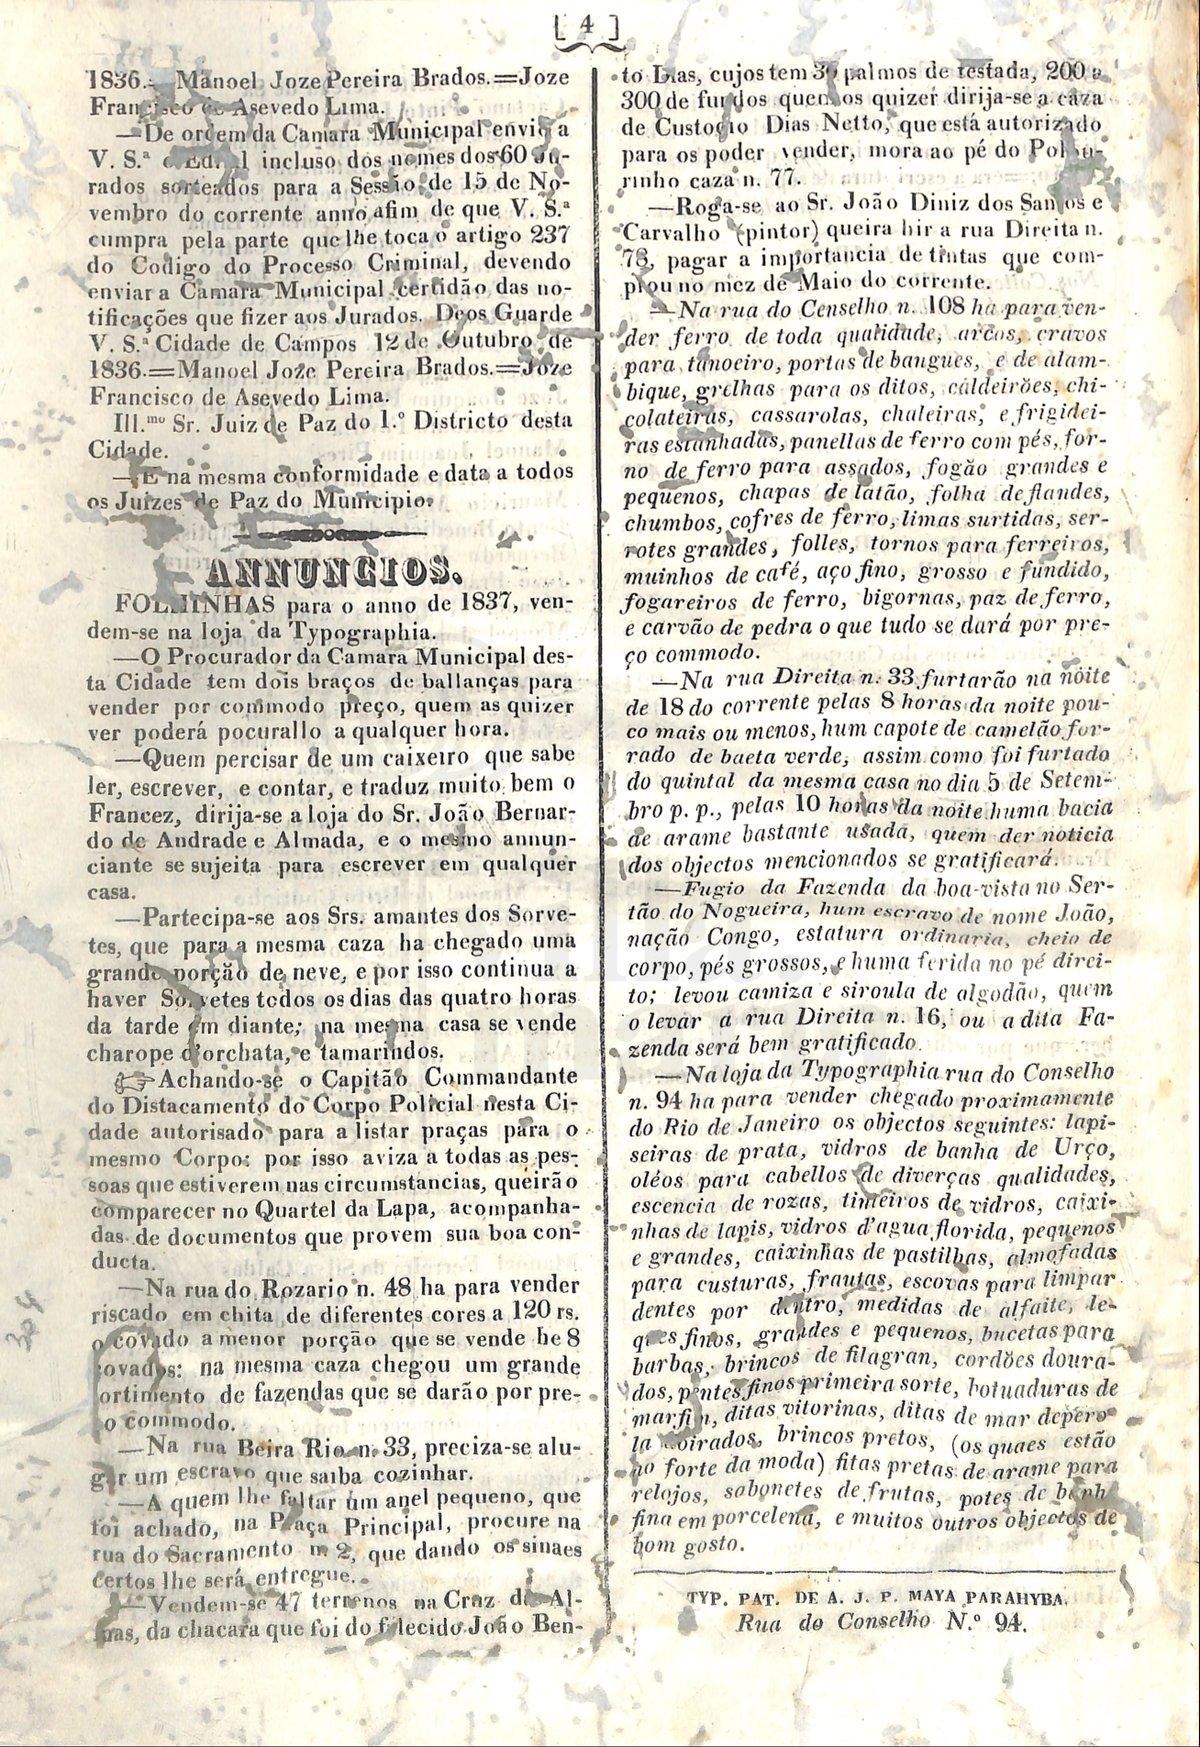 [ 4 ]
1836.= Manoel Joze Pereira Brados.=Joze
Francisco de Asevedo Lima.
—De ordem da Camara Municipal envio a
V. S.ª o Edital incluso dos nomes dos 60 Ju-
rados sorteados para a Sessão de 15 de No-
vembro do corrente anno afim de que V. S.ª
cumpra pela parte que lhe toca o artigo 237
do Codigo do Processo Criminal, devendo
enviar a Camara Municipal certidão das no-
tificações que fizer aos Jurados. Deos Guarde
V. S.ª Cidade de Campos 12 de Outubro de
1836.=Manoel Joze Pereira Brados.=Joze
Francisco de Asevedo Lima.
Ill.mo Sr. Juiz de Paz do 1.º Districto desta
Cidade.
—E na mesma conformidade e data a todos
os Juizes de Paz do Municipio.
ANNUNCIOS.
FOLHINHAS para o anno de 1837, ven-
dem-se na loja da Typographia.
—O Procurador da Camara Municipal des-
ta Cidade tem dois braços de ballanças para
vender por commodo preço, quem as quizer
ver poderá pocurallo a qualquer hora.
—Quem percisar de um caixeiro que sabe
ler, escrever, e contar, e traduz muito bem o
Francez, dirija-se a loja do Sr. João Bernar-
do de Andrade e Almada, e o mesmo annun-
ciante se sujeita para escrever em qualquer
casa.
—Partecipa-se aos Srs. amantes dos Sorve-
tes, que para a mesma caza ha chegado uma
grande porção de neve, e por isso continua a
haver Sorvetes todos os dias das quatro horas
da tarde em diante; na mesma casa se vende
charope d'orchata, e tamarindos.
☞Achando-se o Capitão Commandante
do Distacamento do Corpo Policial nesta Ci-
dade autorisado para a listar praças para o
mesmo Corpo: por isso aviza a todas as pes-
soas que estiverem nas circumstancias, queirão
comparecer no Quartel da Lapa, acompanha-
das de documentos que provem sua boa con-
ducta.
—Na rua do Rozario n. 48 ha para vender
riscado em chita de diferentes cores a 120 rs.
o covado a menor porção que se vende he 8
covados: na mesma caza chegou um grande
ortimento de fazendas que se darão por pre-
o commodo.
—Na rua Beira Rio n. 33, preciza-se alu-
gar um escravo que saiba cozinhar.
—A quem lhe faltar um anel pequeno, que
foi achado, na Praça Principal, procure na
rua do Sacramento n. 2, que dando os sinaes
certos lhe será entregue.
—Vendem-se 47 terrenos na Cruz das Al-
mas, da chacara que foi do falecido João Ben-
to Dias, cujos tem 30 palmos de testada, 200 a
300 de fundos quem os quizer dirija-se a caza
de Custodio Dias Netto, que está autorizado
para os poder vender, mora ao pé do Pelou-
rinho caza n. 77.
—Roga-se ao Sr. João Diniz dos Santos e
Carvalho (pintor) queira hir a rua Direita n.
78, pagar a importancia de tintas que com-
prou no mez de Maio do corrente.
—Na rua do Censelho n. 108 ha para ven-
der ferro de toda qualidade, arcos, cravos
para tanoeiro, portas de bangues, e de alam-
bique, grelhas para os ditos, caldeirões, chi-
colateiras, cassarolas, chaleiras, e frigidei-
ras estanhadas, panellas de ferro com pés, for-
no de ferro para assados, fogão grandes e
pequenos, chapas de latão, folha de flandes,
chumbos, cofres de ferro, limas surtidas, ser-
rotes grandes, folles, tornos para ferreiros,
muinhos de café, aço fino, grosso e fundido,
fogareiros de ferro, bigornas, paz de ferro,
e carvão de pedra o que tudo se dará por pre-
ço commodo.
—Na rua Direita n. 33 furtarão na noite
de 18 do corrente pelas 8 horas da noite pou-
co mais ou menos, hum capote de camelão for-
rado de baeta verde, assim como foi furtado
do quintal da mesma casa no dia 5 de Setem-
bro p. p., pelas 10 horas da noite huma bacia
de arame bastante usada, quem der noticia
dos objectos mencionados se gratificará.
—Fugio da Fazenda da boa-vista no Ser-
tão do Nogueira, hum escravo de nome João,
nação Congo, estatura ordinaria, cheio de
corpo, pés grossos, e huma ferida no pé direi-
to; levou camiza e siroula de algodão, quem
o levar a rua Direita n. 16, ou a dita Fa-
zenda será bem gratificado.
—Na loja da Typographia rua do Conselho
n. 94 ha para vender chegado proximamente
do Rio de Janeiro os objectos seguintes: lapi-
seiras de prata, vidros de banha de Urço,
oléos para cabellos de diverças qualidades,
escencia de rozas, tinteiros de vidros, caixi-
nhas de lapis, vidros d'agua florida, pequenos
e grandes, caixinhas de pastilhas, almofadas
para custuras, frautas, escovas para limpar
dentes por dentro, medidas de alfaite, le-
ques finos, grandes e pequenos, bucetas para
barbas, brincos de filagran, cordões doura-
dos, pentes finos primeira sorte, botuaduras de
marfim, ditas vitorinas, ditas de mar depero
la doirados, brincos pretos, (os quaes estão
no forte da moda) fitas pretas de arame para
relojos, sabonetes de frutas, potes de banh
fina em porcelena, e muitos outros objectos de
bom gosto.
TYP. PAT. DE A. J. P. MAYA PARAHYBA.
Rua do Conselho N.º 94.